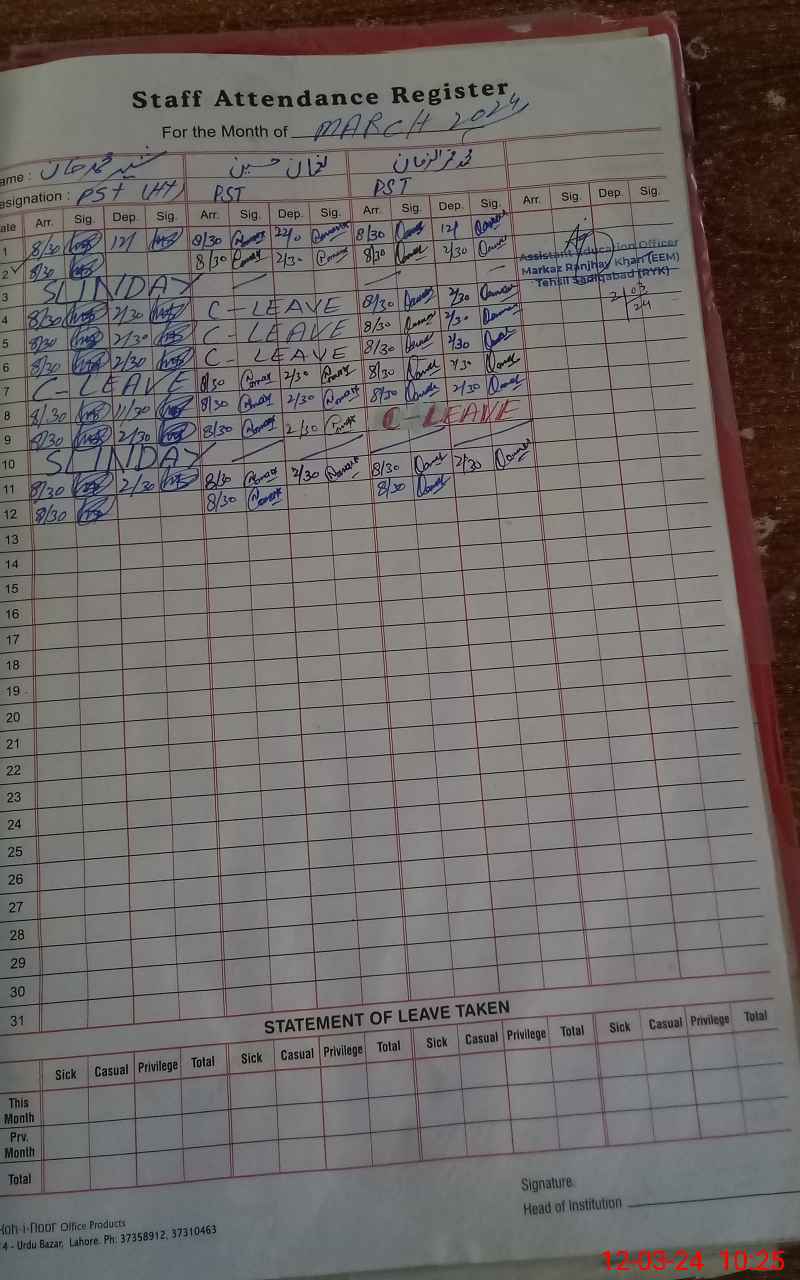 Staff Attendance Register
For the Month of MARCH 2024
ame : شبیر محمد خان لقمان حسین محمد فخر الزمان
esignation : PST (HT) PST PST
ate Arr. Sig. Dep. Sig. Arr. Sig. Dep. Sig. Arr. Sig. Dep. Sig. Arr. Sig. Dep. Sig.
1 8/30 12/ 8/30 8/30 12/
2 8/30 8/30 2/30 8/30 2/30
Assistant Education Officer
Markaz Ranjhay Khan (EEM)
Tehsil Sadiqabad (RYK)
3 SUNDAY
4 8/30 2/30 C-LEAVE 8/30 2/30
5 8/30 2/30 C-LEAVE 8/30 2/30
6 8/30 2/30 C-LEAVE 8/30 2/30
7 C-LEAVE 8/30 2/30 8/30 2/30
8 8/30 11/30 8/30 2/30 8/30 2/30
9 8/30 2/30 8/30 2/30 C-LEAVE
10 SUNDAY
11 8/30 2/30 8/30 2/30 8/30 2/30
12 8/30 8/30 8/30
13
14
15
16
17
18
19
20
21
22
23
24
25
26
27
28
29
30
31
STATEMENT OF LEAVE TAKEN
Sick Casual Privilege Total Sick Casual Privilege Total Sick Casual Privilege Total Sick Casual Privilege Total
This
Month
Prv.
Month
Total
Signature.
Head of Institution
Koh-i-noor Office Products
4 - Urdu Bazar, Lahore. Ph: 37358912, 37310463
12-03-24 10:25